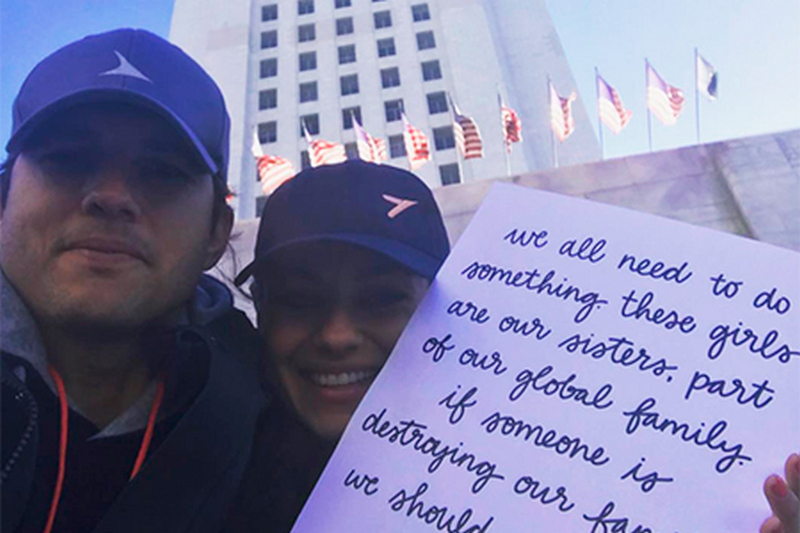 we all need to do
something. these girls
are our sisters, part
of our global family.
if someone is
destroying our
we should